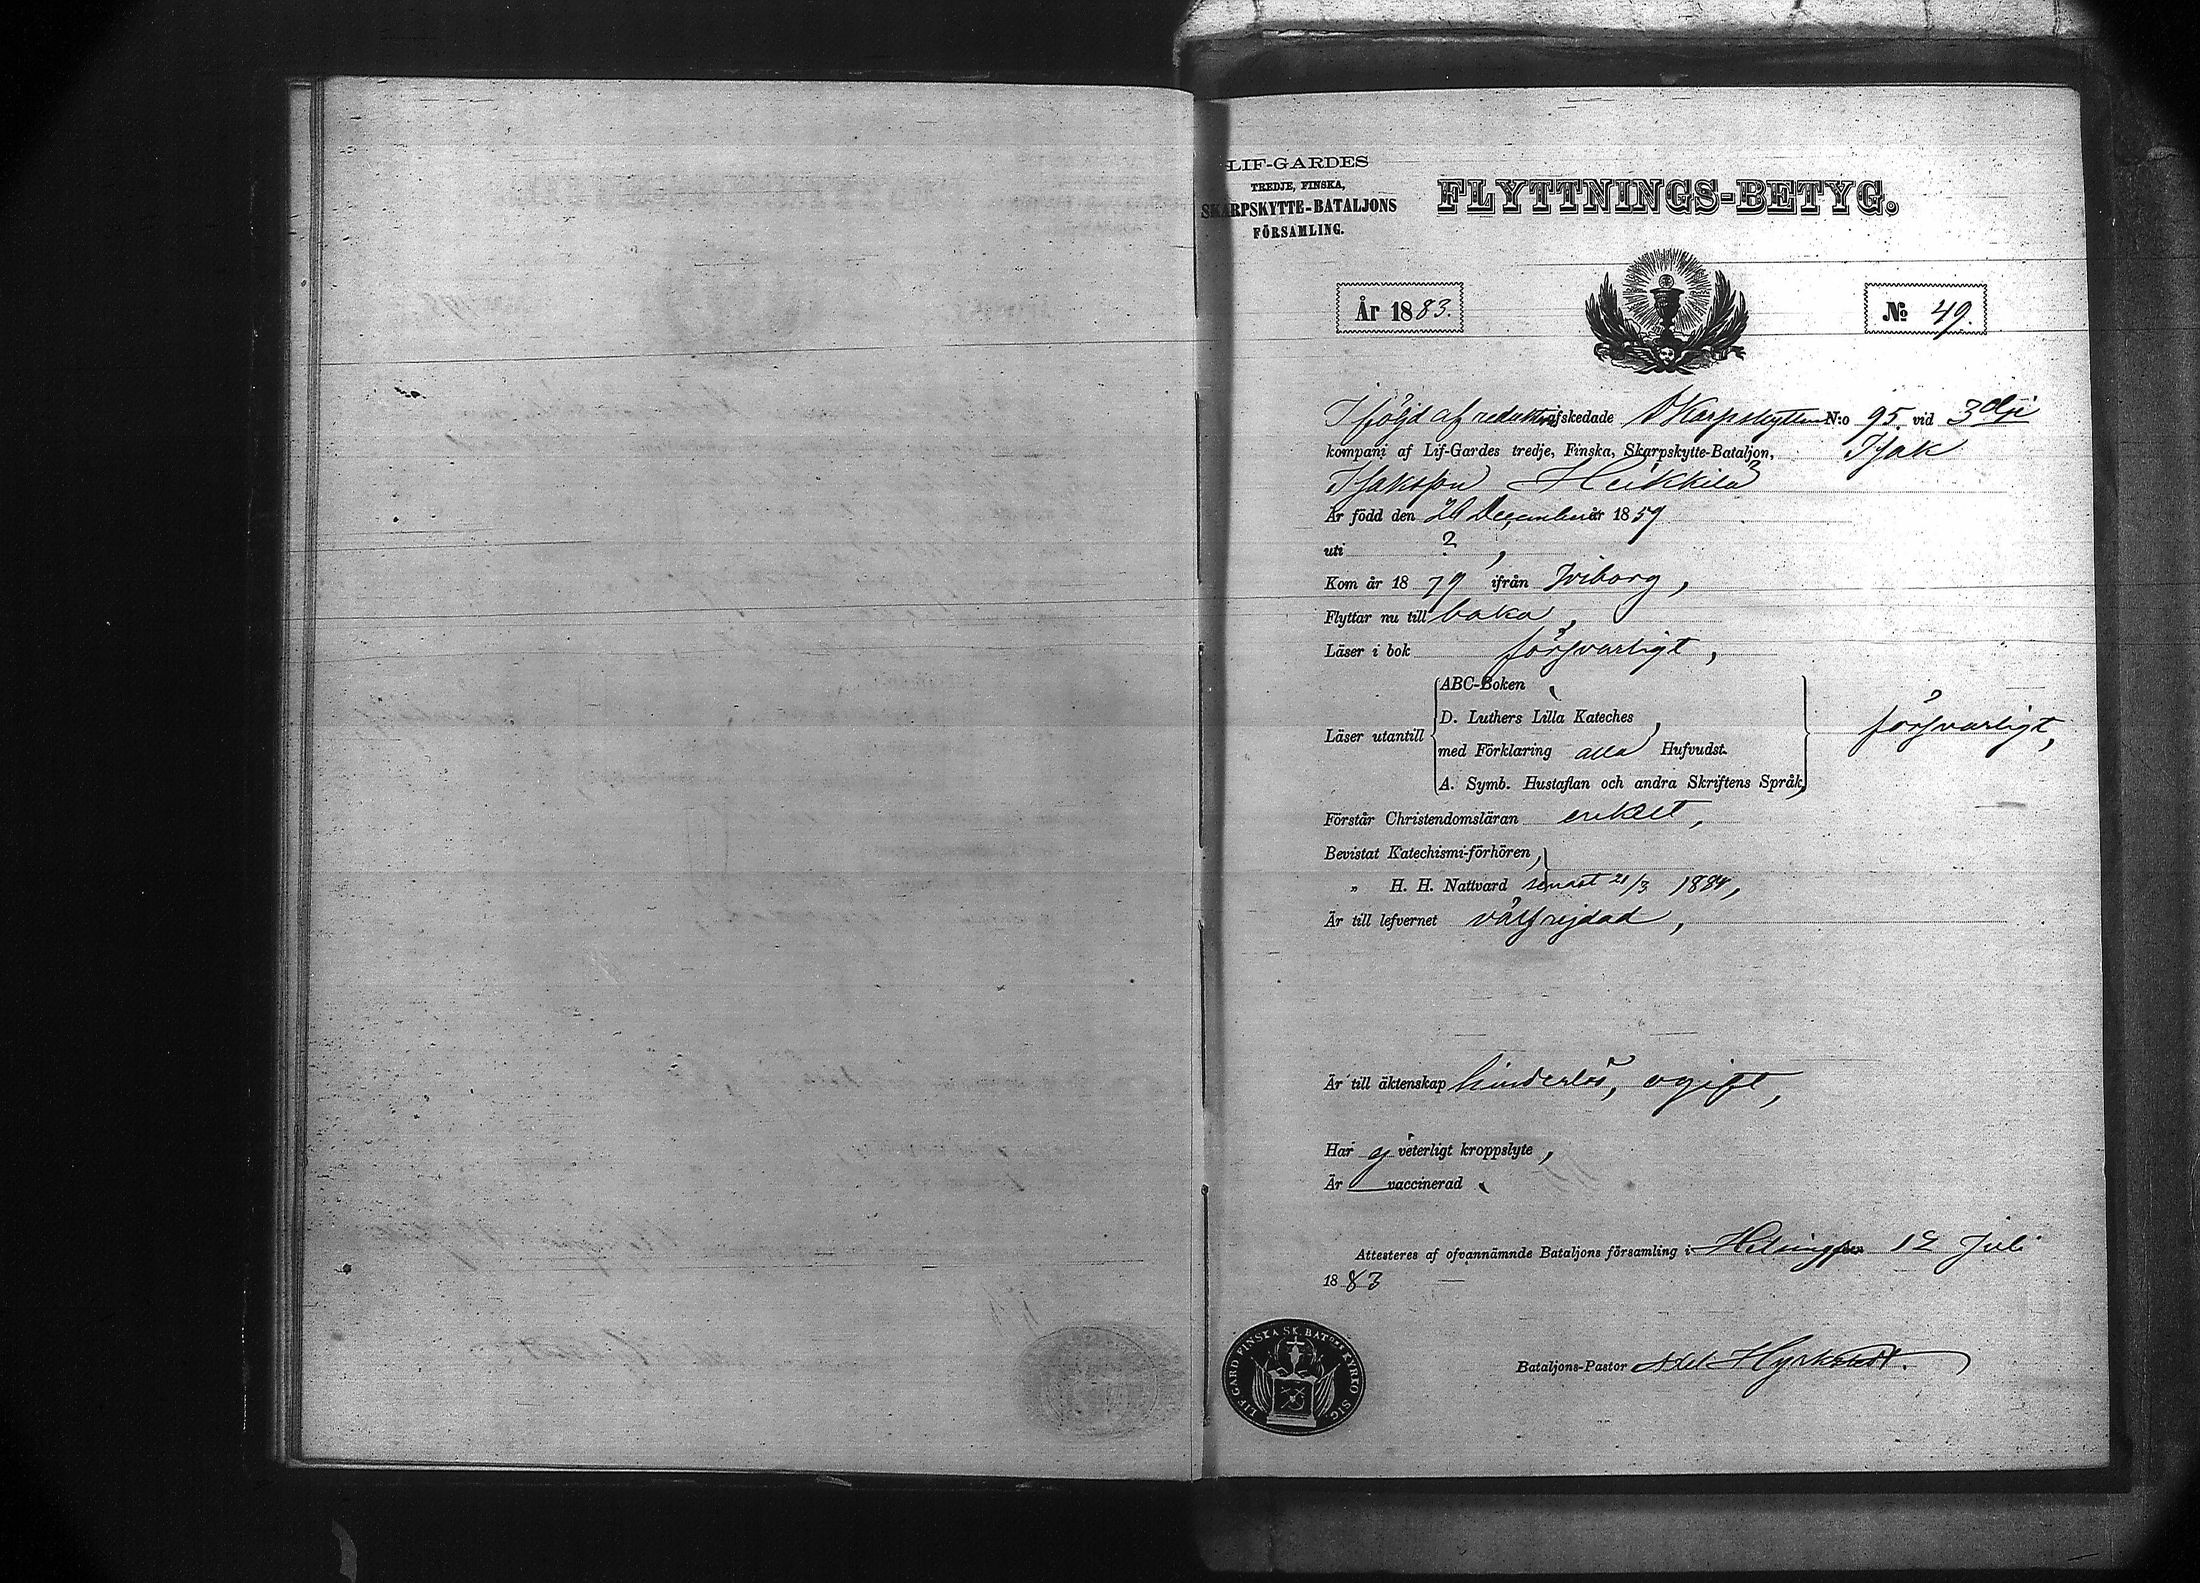 LIF-GARDES
TREDJE, FINSKA,
SKARPSKYTTE-BATALJONS
FÖRSAMLING.
FLYTTNINGS-BETYG.
År 1883.
No 49.
I följd af afskedade Skarpskytten N:o 95 vid 3dje
kompani af Lif-Gardes tredje, Finska, Skarpskytte-Bataljon, Isak
Isaksson Heikkilä
Är född den December år 1859
uti ? ,
Kom år 1879 ifrån Wiborg,
Flyttar nu till baka,
Läser i bok försvarligt,
ABC-Boken
D. Luthers Lilla Kateches
Läser utantill
med Förklaring alla Hufvudst.
försvarligt,
A. Symb. Hustaflan och andra Skriftens Språk,
Förstår Christendomsläran enkelt,
Bevistat Katechismi-förhören,
„ H. H. Nattvard senast
Är till lefvernet välfrejdad,
Är till äktenskap hinderlös, ogift,
Har ej veterligt kroppslyte,
Är vaccinerad
Attesteras af ofvannämnde Bataljons församling i Helsingfors 12 Juli
1883
LIF. GARD FINSKA SK. BATONS KYRKO SIG.
Bataljons-Pastor Axel Hyrkstedt.